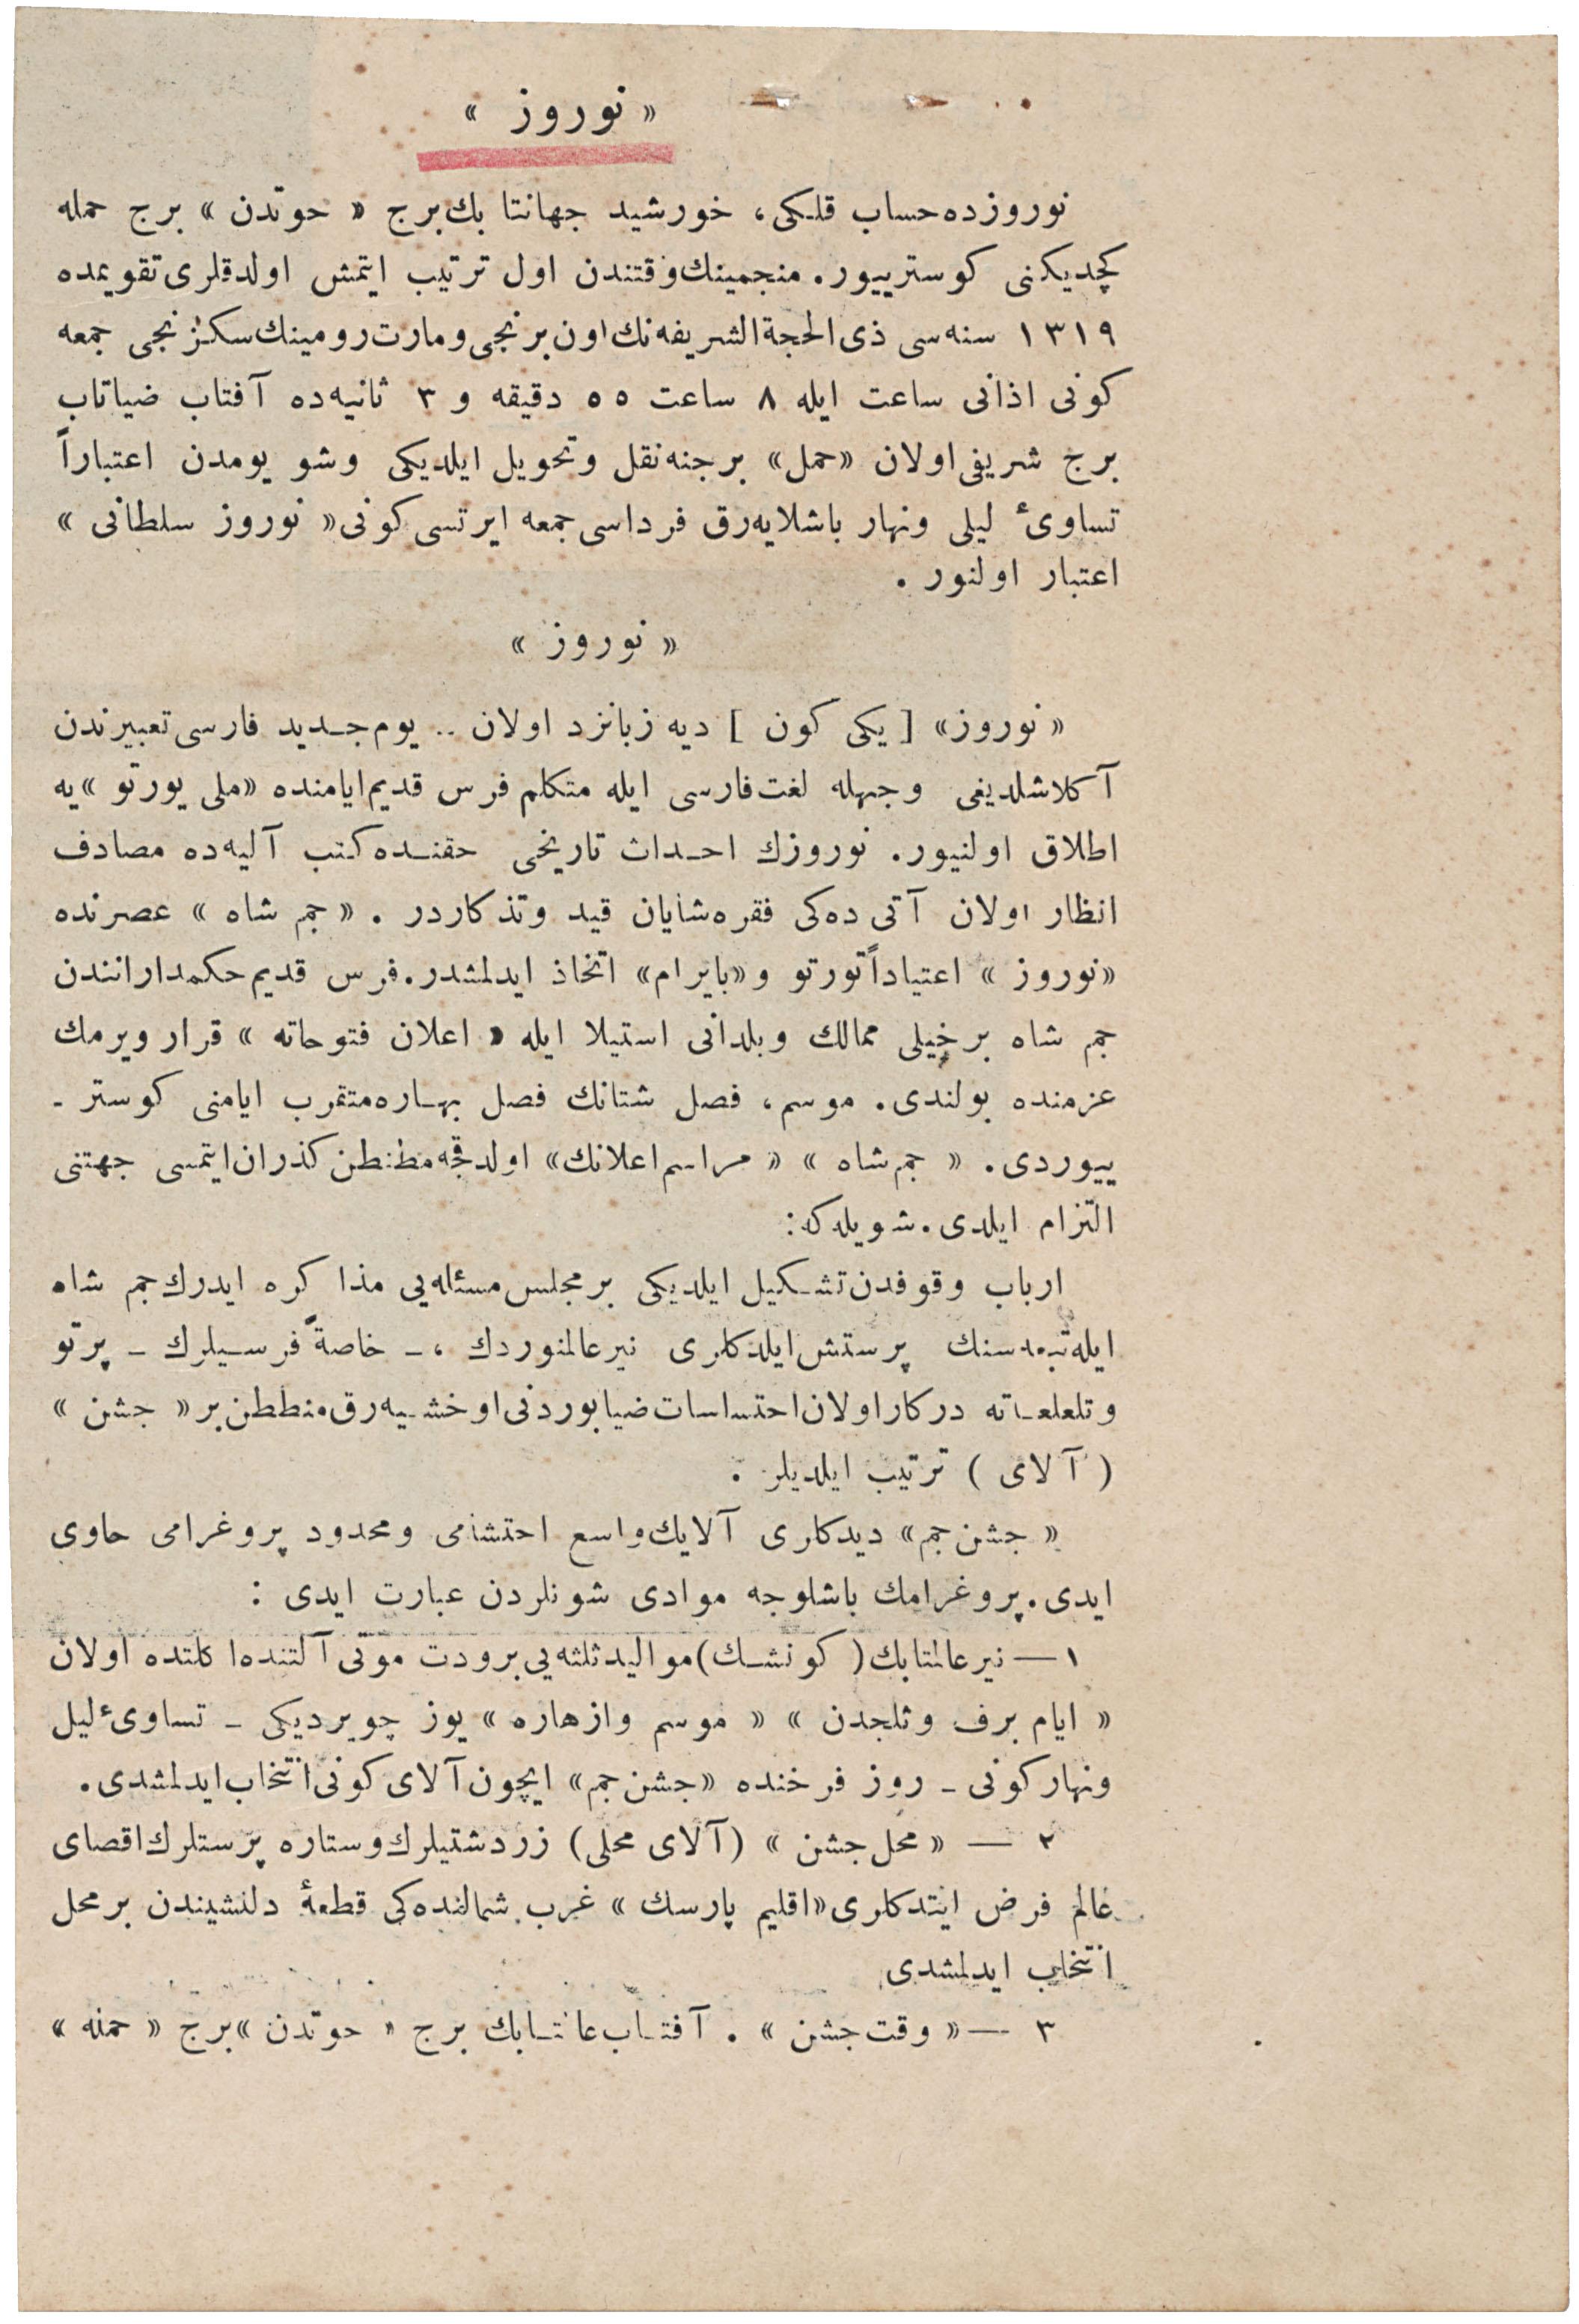 « نوروز »
نوروزده حساب قلکی، خورشید جهانتا بك برج « حوتدن » برج حمله
کچدیکنی کوسترییور. منجمینك وقتندن اول ترتیب ایتمش اولدقلری تقویمده
١٣١٩ سنه سی ذی الحجة الشریفه نك اون برنجی ومارت رومینك سکزنجی جمعه
کونی اذانی ساعت ایله ٨ ساعت ٥٥ دقیقه و ٣ ثانیه ده آفتاب ضیاتاب
برج شریفی اولان «حمل» برجنه نقل وتحویل ایلدیکی وشو یومدن اعتباراً
تساویٔ لیلی ونهار باشلایه رق فرداسی جمعه ایرتسی کونی « نوروز سلطانی »
اعتبار اولنور .
« نوروز »
« نوروز» [ یکی کون ] دیه زبانزد اولان .. یوم جدید فارسی تعبیرندن
آکلاشلدیغی وجهله لغت فارسی ایله متکلم فرس قدیم ایامنده «ملی یورتو »یه
اطلاق اولنیور. نوروزك احداث تاریخی حقنده کتب آلیه ده مصادف
انظار اولان آتی ده کی فقره شایان قید وتذکاردر . « جم شاه » عصرنده
«نوروز » اعتیاداً تورتو و«بایرام» اتخاذ ایدلمشدر. فرس قدیم حکمدارانندن
جم شاه برخیلی ممالك وبلدانی استیلا ایله « اعلان فتوحاته » قرار ویرمك
عزمنده بولندی. موسم، فصل شتانك فصل بهاره متقرب ایامنی کوستر ـ
ییوردی. « جم شاه » « مراسم اعلانك» اولدقجه مطنطن کذران ایتمسی جهتنی
التزام ایلدی. شویله که:
ارباب وقوفدن تشکیل ایلدیکی بر مجلس مسئله یی مذا کره ایدرك جم شاه
ایله تبعه سنك پرستش ایلدکلری نیر عالمنوردك ، ـ خاصةً فرسیلرك ـ پرتو
وتلعلعاته درکار اولان احتساسات ضیا بوردنی اوخشیه رق منططن بر « جشن »
( آلای ) ترتیب ایلدیلر .
« جشن جم» دیدکلری آلایك واسع احتشامی ومحدود پروغرامی حاوی
ایدی. پروغرامك باشلوجه موادی شونلردن عبارت ایدی :
١ — نیر عالمتابك ( کونشك) موالید ثلثه یی برودت موتی آلتنده اکلتده اولان
« ایام برف وثلجدن » « موسم وازهاره » یوز چویردیکی ـ تساویٔ لیل
ونهار کونی ـ روز فرخنده «جشن جم» ایچون آلای کونی انتخاب ایدلمشدی.
٢ — « محل جشن » (آلای محلی) زردشتیلرك وستاره پرستلرك اقصای
عالم فرض ایتدکلری «اقلیم پارسك » غرب شمالنده کی قطعهٔ دلنشیندن بر محل
انتخاب ایدلمشدی
٣ — « وقت جشن » . آفتاب عانتابك برج « حوتدن » برج « حمنه »